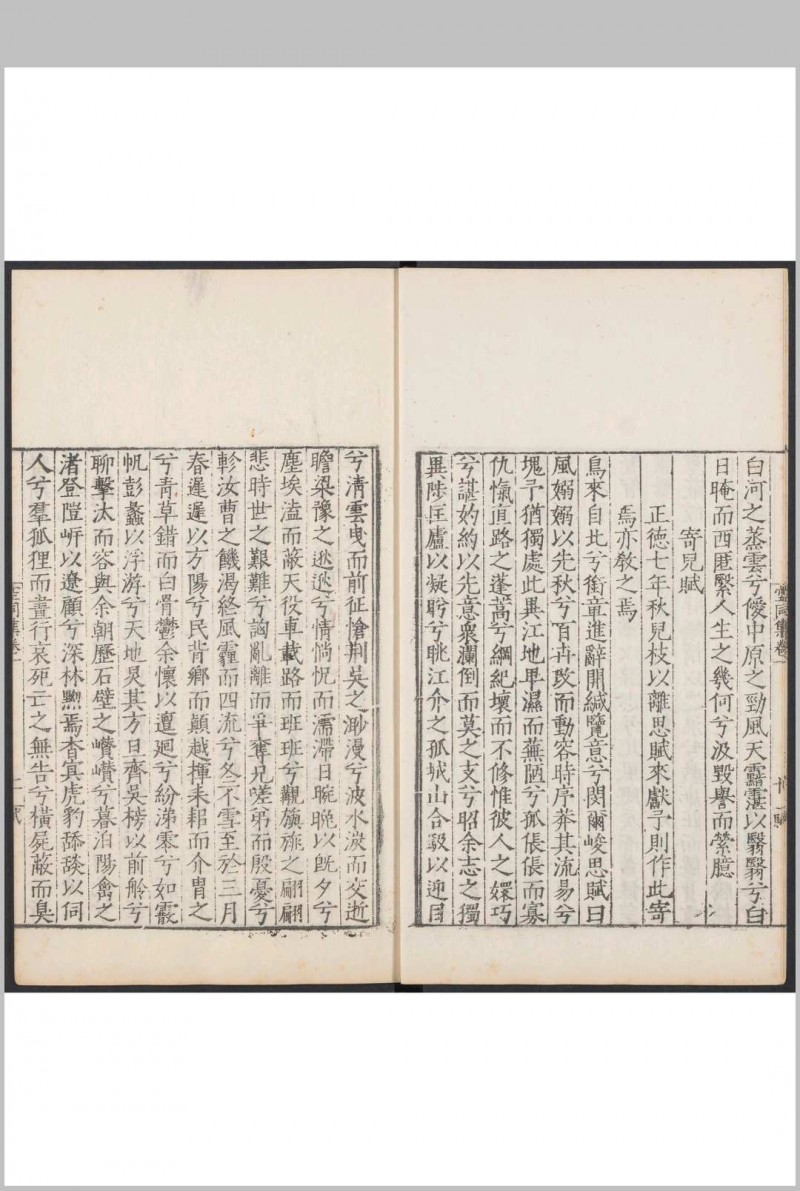 白河之蒸雲兮僾中原之勁風天霝霮以翳翳兮白
日晻而西匿繄人生之幾何兮汲毀譽而縈臆
寄兒賦
正德七年秋兒枝以離思賦來獻予則作此寄
焉亦敎之焉
鳥來自北兮銜章進辭開緘覽意兮閔爾峻思賦曰
風嫋嫋以先秋兮百卉改而動容時序莽其流易兮
塊予猶獨處此異江地卑濕而蕪陋兮孤倀倀而寡
仇愾直路之蓬蒿兮綱紀壞而不修惟彼人之嬛巧
兮諶妁約以先意衆瀾倒而莫之支兮昭余志之獨
異陟匡廬以凝盻兮眺江介之孤城山合沓以迎目
兮淸雲曳而前征愴荆吳之渺漫兮波水淚而交逝
瞻梁豫之逖逖兮情惝怳而濡滯日晼晚以旣夕兮
塵埃溘而蔽天役車載路而班班兮覯旗旐之翩翩
悲時世之艱難兮詾亂離而爭奪兄嗟弟而殷憂兮
軫汝曹之饑渴終風霾而四流兮冬不雪至於三月
春遲遲以方陽兮民背鄉而顛越揮耒耜而介胄之
兮靑草錯而白骨鬱余懷以邅廻兮紛涕零兮如霰
帆彭蠡以浮游兮天地炅其方日齊吳榜以前舲兮
聊擊汰而容與余朝歷石壁之巑巑兮暮泊陽禽之
渚登隑岍以遼顧兮深林黝焉杳冥虎豹舔舕以伺
人兮羣狐狸而晝行哀死亡之無告兮橫屍蔽而臭